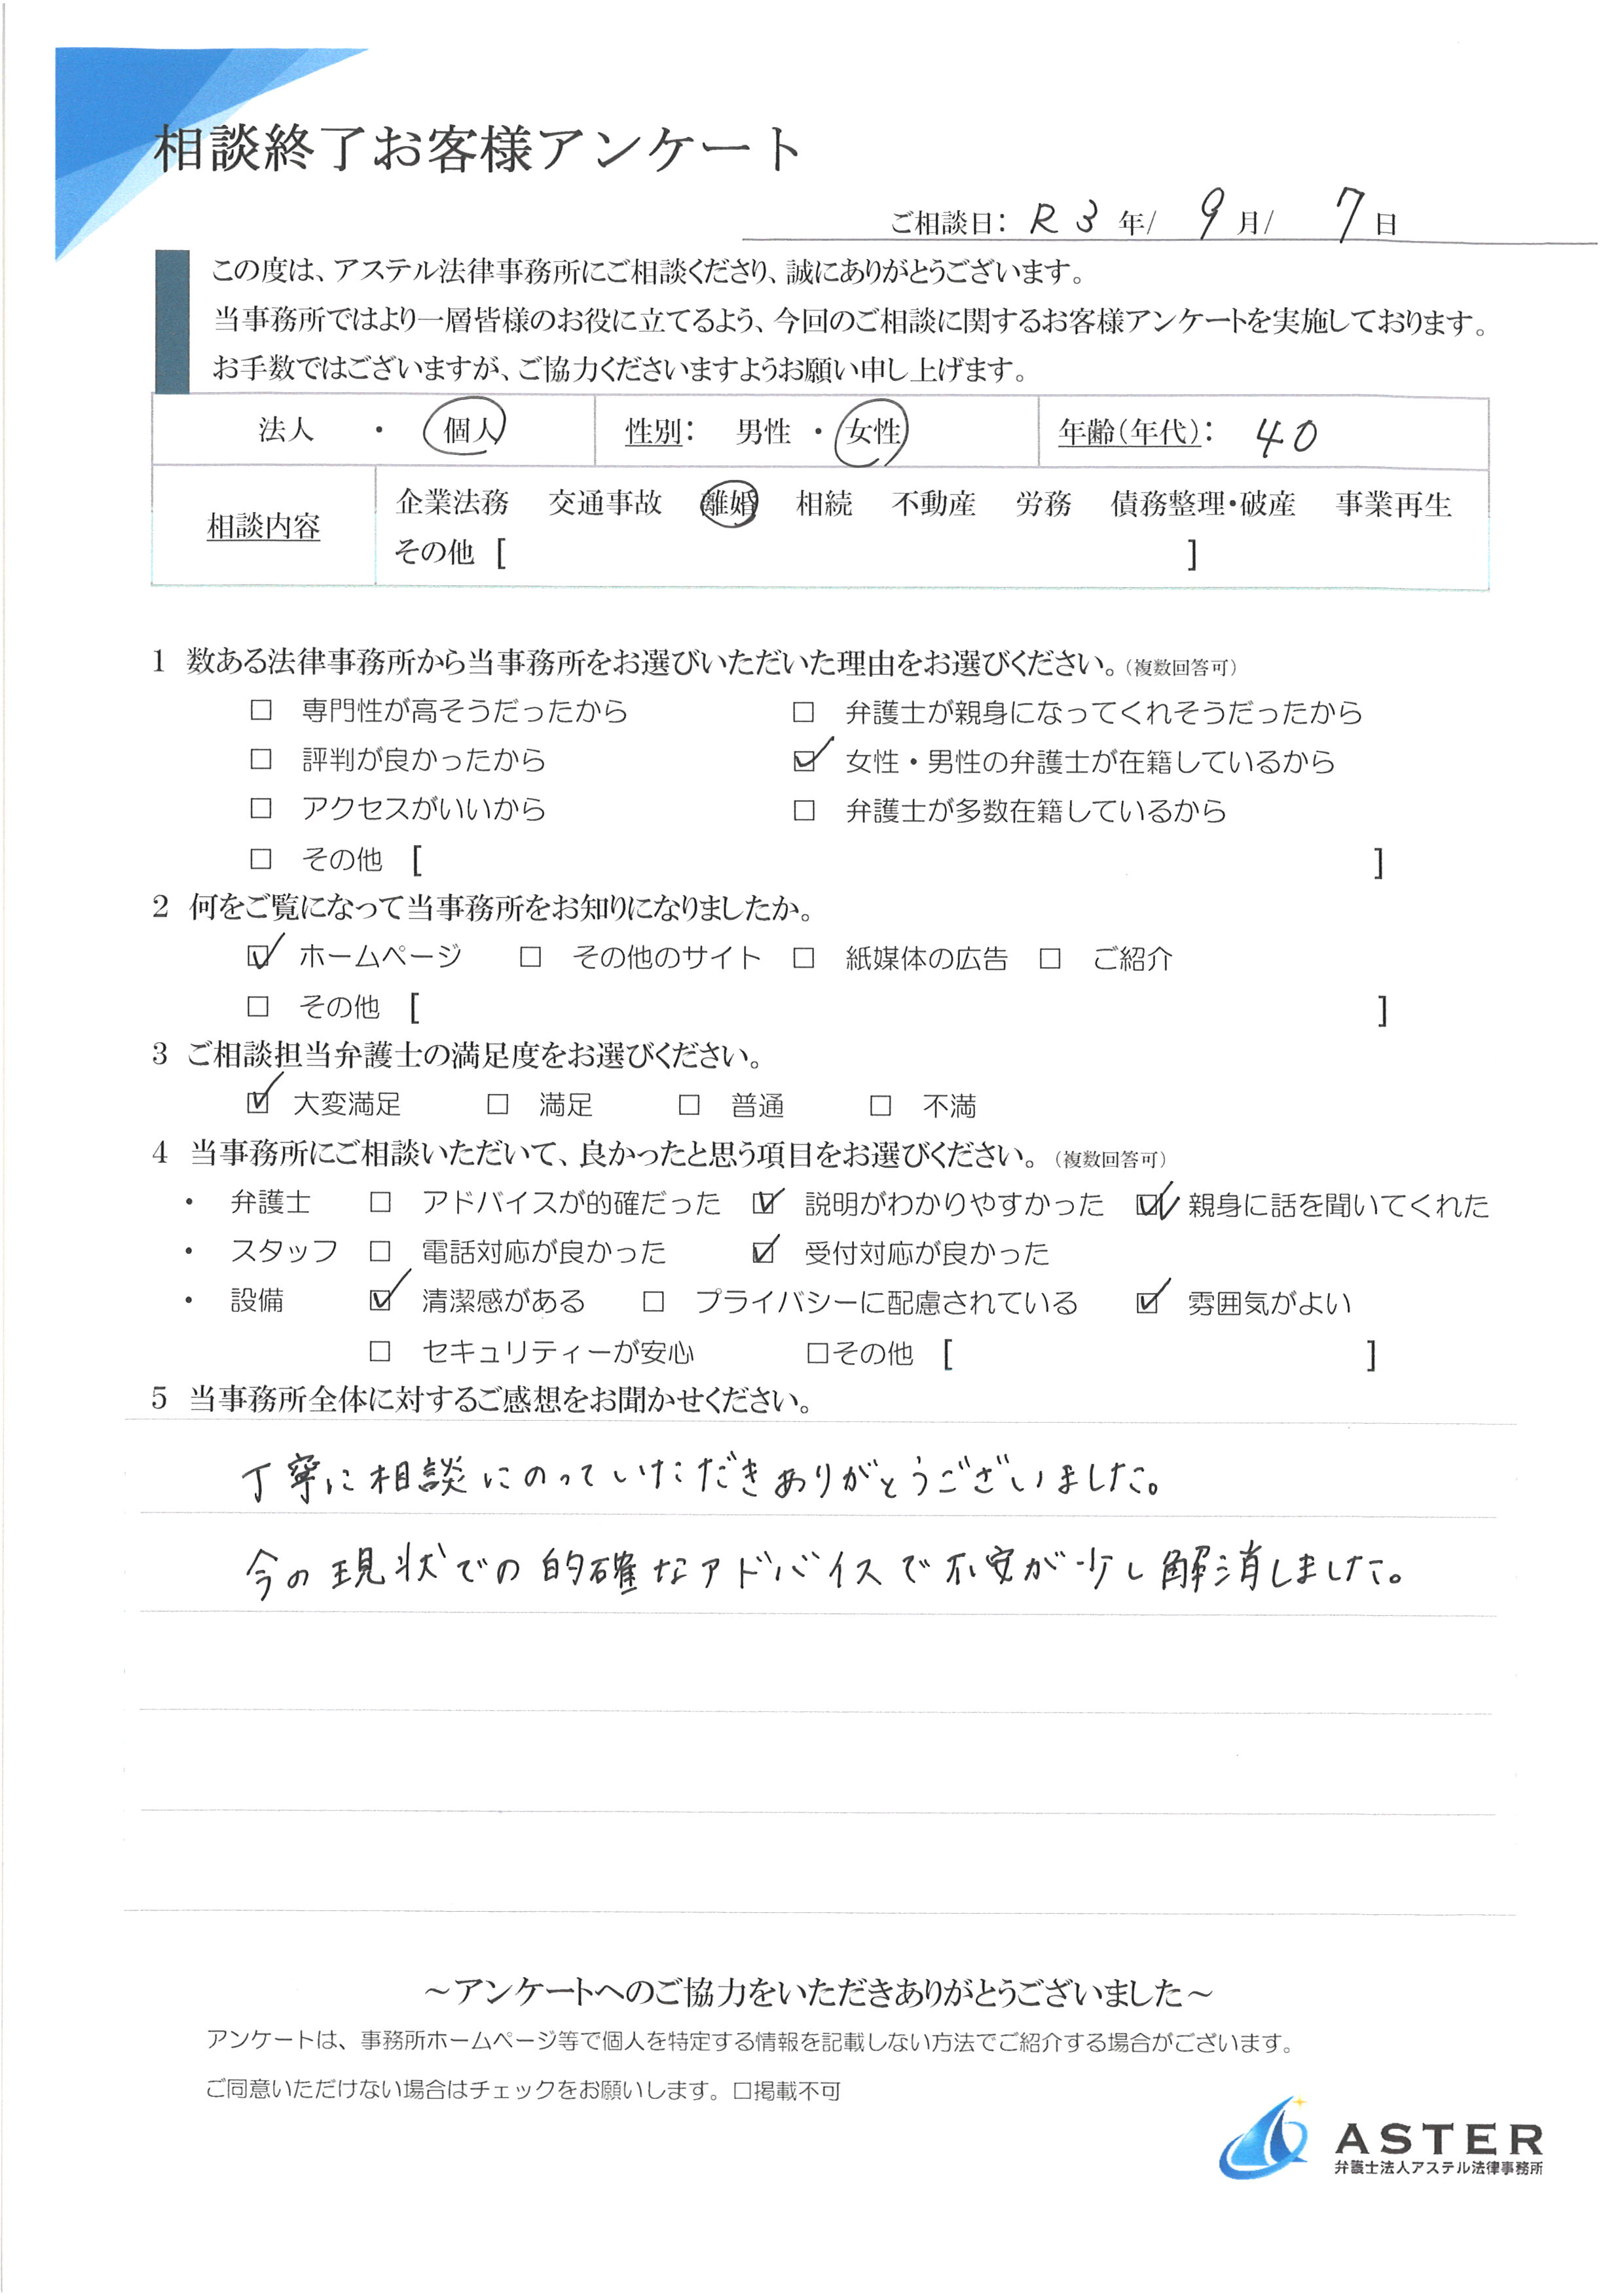 相談終了お客様アンケート
ご相談日： R3年/ 9月/ 7日
この度は、アステル法律事務所にご相談くださり、誠にありがとうございます。
当事務所ではより一層皆様のお役に立てるよう、今回のご相談に関するお客様アンケートを実施しております。
お手数ではございますが、ご協力くださいますようお願い申し上げます。
法人 ・ 個人 性別： 男性 ・ 女性 年齢（年代）： 40
相談内容 企業法務 交通事故 離婚 相続 不動産 労務 債務整理・破産 事業再生
その他 [ ]
1 数ある法律事務所から当事務所をお選びいただいた理由をお選びください。（複数回答可）
□ 専門性が高そうだったから □ 弁護士が親身になってくれそうだったから
□ 評判が良かったから ☑ 女性・男性の弁護士が在籍しているから
□ アクセスがいいから □ 弁護士が多数在籍しているから
□ その他 [ ]
2 何をご覧になって当事務所をお知りになりましたか。
☑ ホームページ □ その他のサイト □ 紙媒体の広告 □ ご紹介
□ その他 [ ]
3 ご相談担当弁護士の満足度をお選びください。
☑ 大変満足 □ 満足 □ 普通 □ 不満
4 当事務所にご相談いただいて、良かったと思う項目をお選びください。（複数回答可）
・ 弁護士 □ アドバイスが的確だった ☑ 説明がわかりやすかった ☑ 親身に話を聞いてくれた
・ スタッフ □ 電話対応が良かった ☑ 受付対応が良かった
・ 設備 ☑ 清潔感がある □ プライバシーに配慮されている ☑ 雰囲気がよい
□ セキュリティーが安心 □その他 [ ]
5 当事務所全体に対するご感想をお聞かせください。
丁寧に相談にのっていただきありがとうございました。
今の現状での的確なアドバイスで不安が少し解消しました。
～アンケートへのご協力をいただきありがとうございました～
アンケートは、事務所ホームページ等で個人を特定する情報を記載しない方法でご紹介する場合がございます。
ご同意いただけない場合はチェックをお願いします。□掲載不可
ASTER
弁護士法人アステル法律事務所